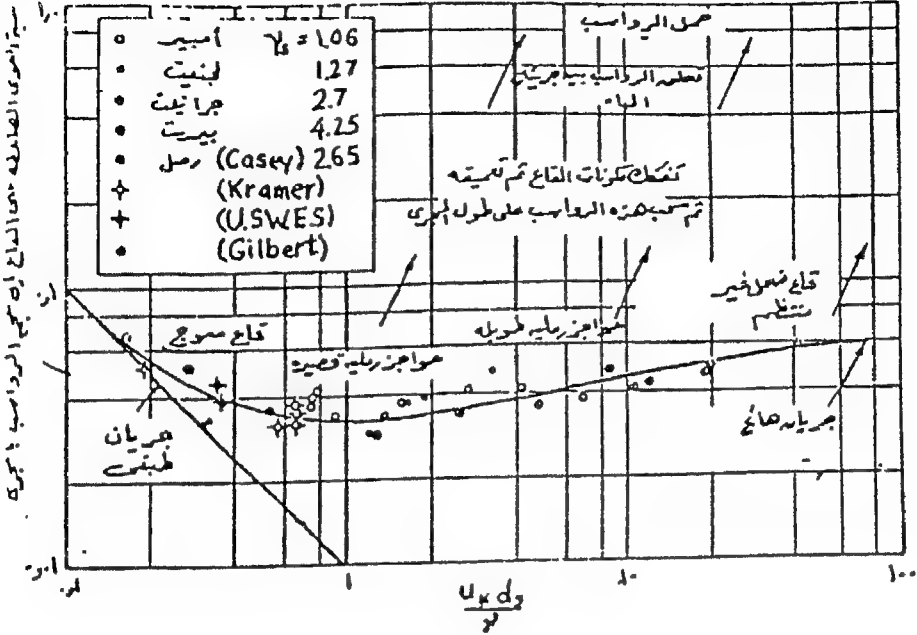 أمبير γs = 1.06
لجنيت 1.27
جرانيت 2.7
بيريت 4.25
رمل (Casey) 2.65
(Kramer)
(U.S.W.E.S)
(Gilbert)
حمل الرواسب
تعلق الرواسب بين جريان
الماء
تفكك مكونات القاع ثم تعميقه
ثم سحب هذه الرواسب على طول المجرى
قاع مموج
حواجز رملية قصيره
حواجز رمليه طويله
قاع ضحل غير
منتظم
جريان
طبقى
جريان هائج
١.٠
٠.١
٠.٠١
٠.١
١
١٠
١٠٠
u* ds
ν